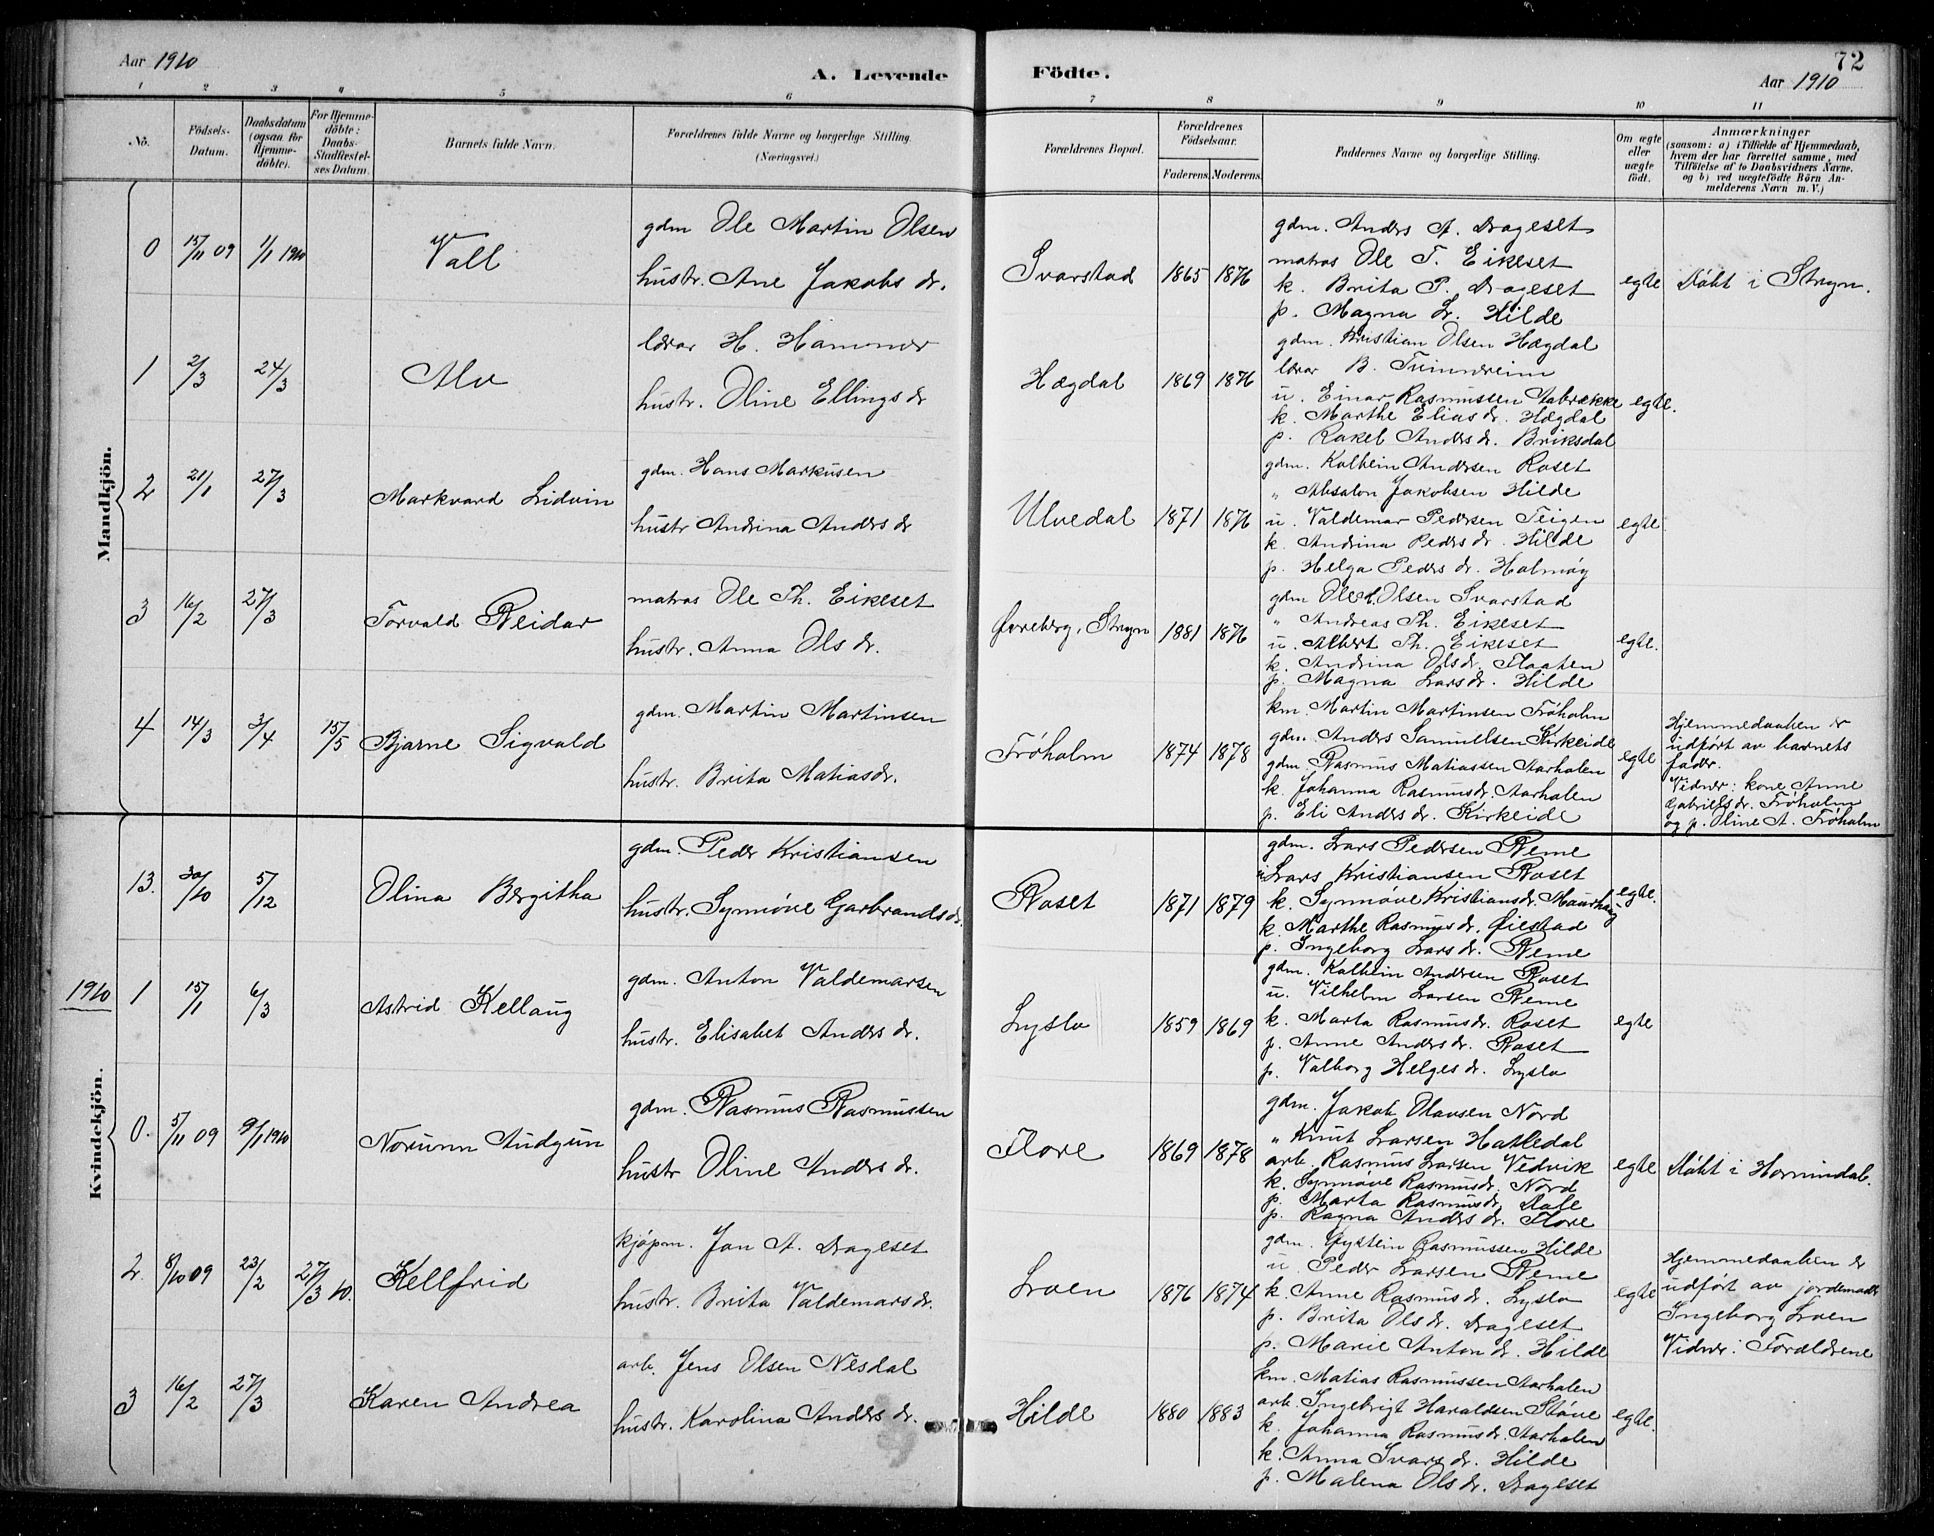 Aar 1910
A. Levende
Födte.
72
Aar 1910
1 2 3 4 5 6 7 8 9 10 11
No.
Födsels-
Datum.
Daabsdatum
(ogsaa for
Hjemme-
döbte).
For Hjemme-
döbte:
Daabs-
Stadfæstel-
ses Datum.
Barnets fulde Navn.
Forældrenes fulde Navne og borgerlige Stilling.
(Næringsvei.)
Forældrenes Bopæl.
Forældrenes
Födselsaar.
Faderens. Moderens.
Faddernes Navne og borgerlige Stilling.
Om ægte
eller
uægte
födt.
Anmærkninger
(saasom: a) i Tilfælde af Hjemmedaab,
hvem der har forrettet samme, med
Tilföielse af to Daabsvidners Navne,
og b) ved uægtefödte Börn An-
melderens Navn m. V.)
Mandkjön.
0 15/11 09 1/1 1910 Vall
gdm Ole Martin Olsen
hustr. Ane Jakobs dr.
Svarstad 1865 1876
gdm. Anders A. Drageset
matros Ole T. Eikeset
k. Brita P. Drageset
p. Magna L. Hilde
egte Döbt i Stryn.
1 2/3 24/3 Alv
lærar H. Hammer
hustr. Oline Ellings dr
Hægdal 1869 1876
gdm. Kristian Olsen Hægdal
lærar B. Tuinnereim
u. Einar Rasmussen Aabrække
k. Marthe Elias dr. Hægdal
p. Rakel Anders dr. Briksdal
egte.
2 21/1 27/3 Markvard Lidvin
gdm. Hans Markusen
hustr Andrina Anders dr
Ulvedal 1871 1876
gdm. Kolbein Andersen Roset
" Absalon Jakobsen Hilde
u. Valdemar Pedersen Teigen
k. Andrina Peders dr. Hilde
p. Helga Peders dr. Holmøy
egte
3 16/2 27/3 Torvald Reidar
matros Ole Th. Eikeset
hustr. Anna Ols dr.
Øvreberg, Stryn 1881 1876
gdm Ole Olsen Svarstad
" Andreas Th. Eikeset
u. Albert Th. Eikeset
k. Andrina Olsdr. Flaaten
p. Magna Lars dr. Hilde
egte.
4 14/3 3/4 15/5 Bjarne Sigvald
gdm. Martin Martinsen
hustr. Brita Matiasdr.
Fröholm 1874 1878
km. Martin Martinsen Fröholm
gdm. Anders Samuelsen Kirkeide
gdm Rasmus Matiassen Aarholen
k. Johanna Rasmusdr. Aarholen
p. Eli Anders dr. Kirkeide
egte
Hjemmedaaben er
udført av barnets
fader.
Vidner: kone Anne
Gabriels dr. Fröholm
og p. Oline A. Fröholm
13. 30/10 5/12 Olina Bergitha
gdm. Peder Kristiansen
hustr. Synnøve Garbrandsdr.
Roset 1871 1879
gdm. Lars Pedersen Reme
" Lars Kristiansen Roset
k. Synnøve Kristiansdr. Maurhaug
k. Marthe Rasmus dr. Øiestad
p. Ingeborg Lars dr. Reme
egte.
1910
Kvindekjön.
1 15/1 6/3 Astrid Kellaug
gdm. Anton Valdemarsen
hustr. Elisabet Anders dr.
Lyslo 1859 1869
gdm. Kolbein Andersen Roset
u. Vilhelm Larsen Reme
k. Marta Rasmusdr. Roset
p. Anne Anders dr. Roset
p. Valborg Helges dr. Lyslo
egte
0. 5/11 09 9/1 1910 Norunn Audgun
gdm. Rasmus Rasmussen
hustr Oline Anders dr.
Flore 1869 1878
gdm. Jakob Olausen Nord
" Knut Larsen Hatledal
arb. Rasmus Larsen Vedvik
k. Synnøve Rasmusdr. Nord
p. Marta Rasmusdr. Dale
p. Ragna Anders dr. Flore
egte Döbt i Hornindal.
2. 8/10 09 23/2 27/3 10. Kellfrid
kjøpm. Jon A. Drageset
hustr. Brita Valdemarsdr.
Loen 1876 1874
gdm. Øystein Rasmussen Hilde
u. Peder Larsen Reme
k. Anne Rasmus dr. Lyslo
p. Brita Ols dr. Drageset
p. Marie Anton dr. Hilde
egte
Hjemmedaaben er
udført av jordemoder
Ingeborg Loen
Vidner: Forældrene
3 16/2 27/3 Karen Andrea
arb. Jens Olsen Nesdal
hustr. Karolina Anders dr.
Hilde 1880 1883
km. Matias Rasmussen Aarholen
arb. Ingebrigt Haraldsen Støve
k. Johanna Rasmusdr. Aarholen
k. Anna Ivars dr. Hilde
p. Malena Ols dr. Drageset
egte.